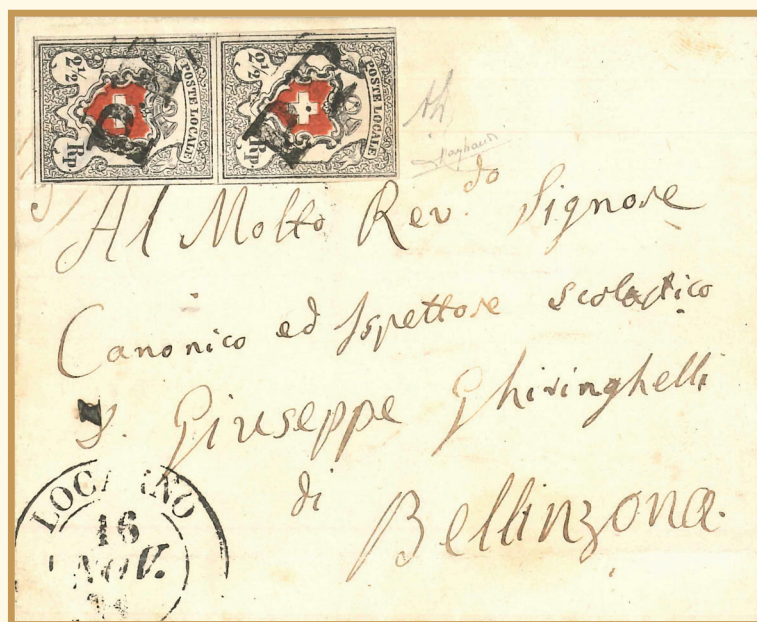 POSTE LOCALE
2½ Rp.
POSTE LOCALE
2½ Rp.
Al Molto Rev.do Signore
Canonico ed Ispettore scolastico
Giuseppe Ghiringhelli
di
Bellinzona.
LOCARNO
16
NOV.